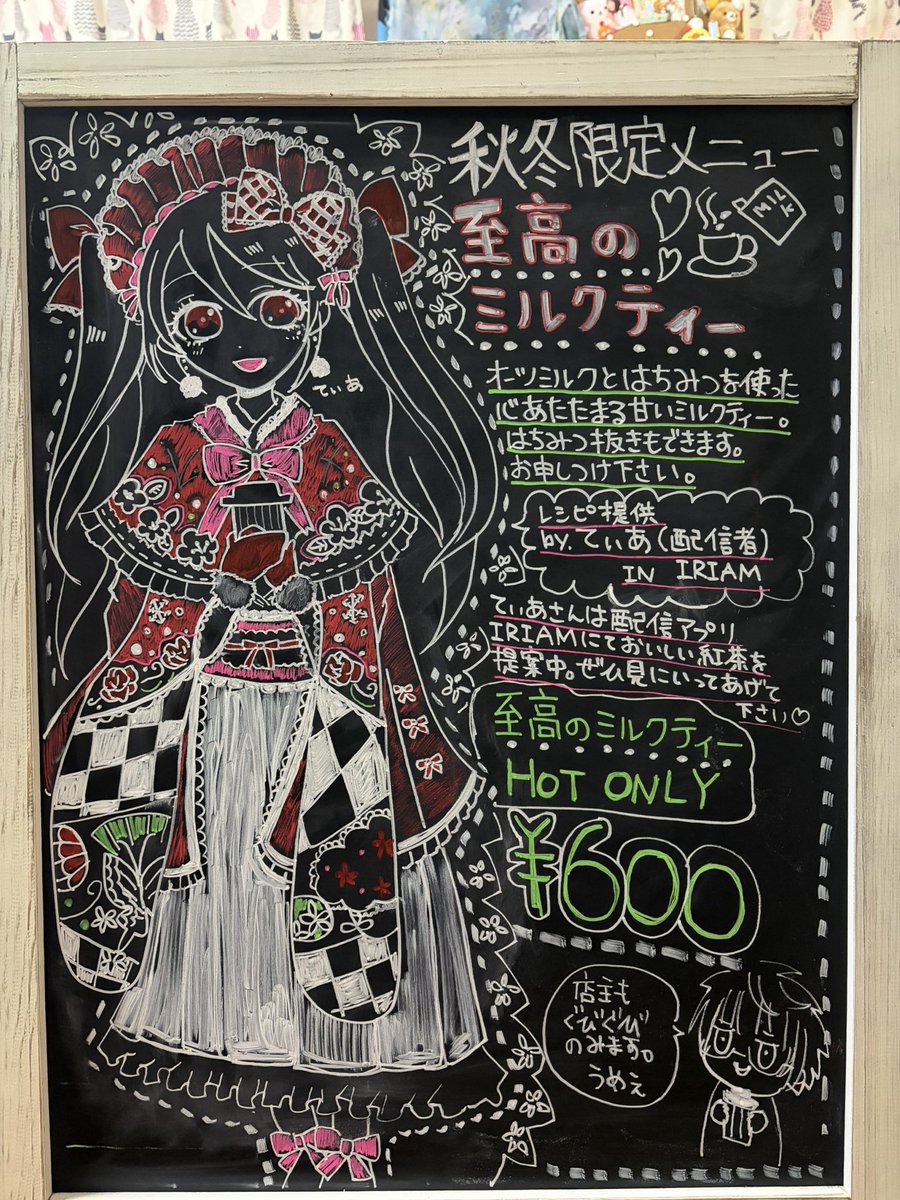 秋冬限定メニュー
至高の
ミルクティー
MILK
てぃあ
オーツミルクとはちみつを使った
心あたたまる甘いミルクティー。
はちみつ抜きもできます。
お申しつけ下さい。
レシピ提供
by.てぃあ(配信者)
IN IRIAM
てぃあさんは配信アプリ
IRIAMにておいしい紅茶を
提案中。ぜひ見にいってあげて
下さい♡
至高のミルクティー
HOT ONLY
¥600
店主も
ぐびぐび
のみます。
うめえ